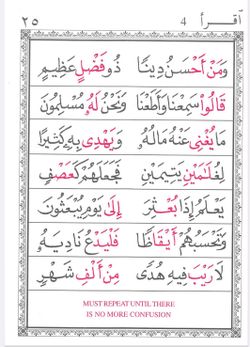 ٢٥ 4 اقرأ
وَمَنْ أَحْسَنُ دِينًا ذُو فَضْلٍ عَظِيمٍ
قَالُوا سَمِعْنَا وَأَطَعْنَا وَنَحْنُ لَهُ مُسْلِمُونَ
مَا يُغْنِي عَنْهُ مَالُهُ وَيَهْدِي بِهِ كَثِيرًا
لِغُلَامَيْنِ يَتِيمَيْنِ فَجَعَلَهُمْ كَعَصْفٍ
يَعْلَمُ إِذَا بُعْثِرَ إِلَى يَوْمِ يُبْعَثُونَ
وَتَحْسَبُهُمْ أَيْقَاظًا فَلْيَدْعُ نَادِيَهُ
لَا رَيْبَ فِيهِ هُدًى مِنْ أَلْفِ شَهْرٍ
MUST REPEAT UNTIL THERE
IS NO MORE CONFUSION